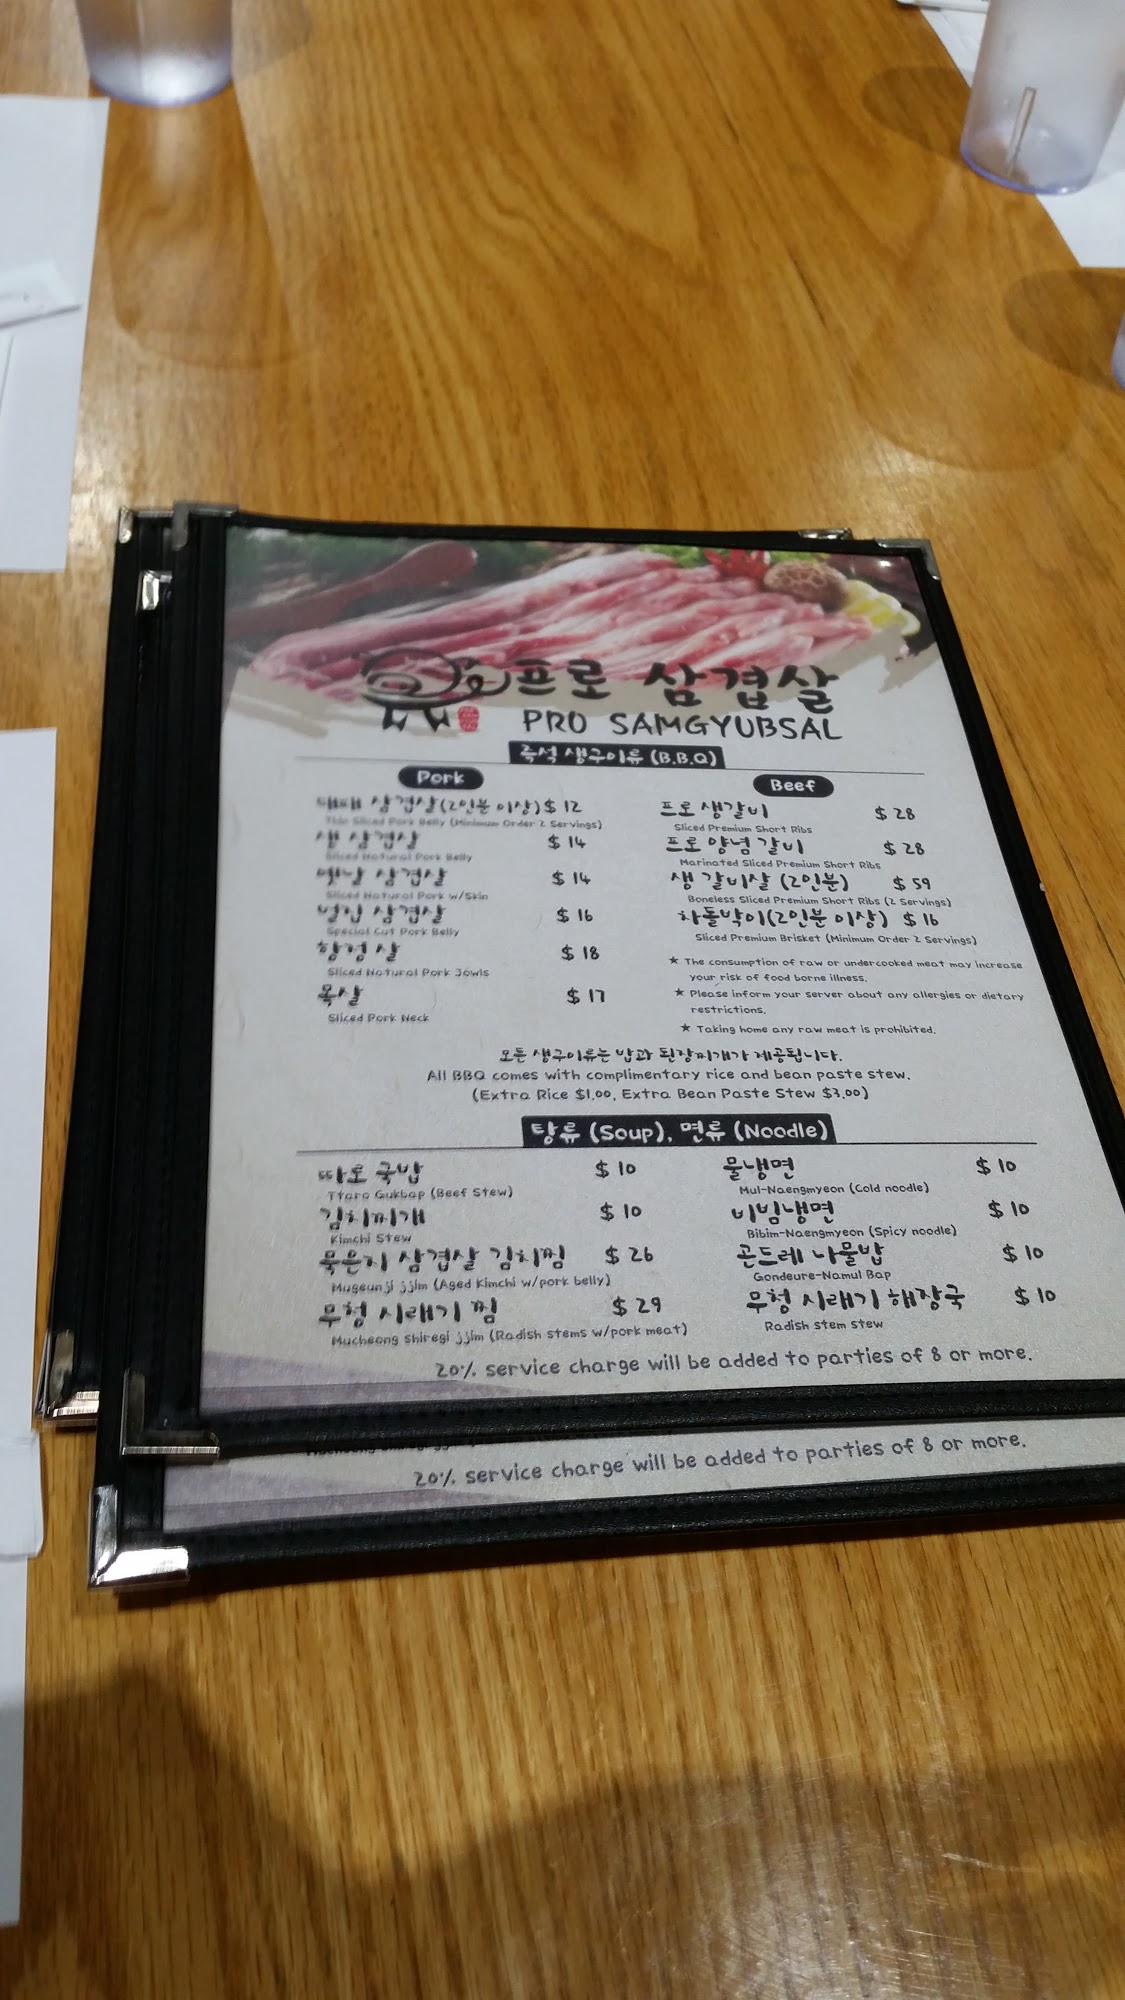 프로 삼겹살
PRO SAMGYUBSAL
즉석 생구이류 (B.B.Q)
Pork
대패 삼겹살(2인분 이상) $ 12
Thin Sliced Pork Belly (Minimum Order 2 Servings)
생 삼겹살 $ 14
Sliced Natural Pork Belly
옛날 삼겹살 $ 14
Sliced Natural Pork w/Skin
벌집 삼겹살 $ 16
Special Cut Pork Belly
항정살 $ 18
Sliced Natural Pork Jowls
목살 $ 17
Sliced Pork Neck
Beef
프로 생갈비 $ 28
Sliced Premium Short Ribs
프로 양념 갈비 $ 28
Marinated Sliced Premium Short Ribs
생 갈비살 (2인분) $ 59
Boneless Sliced Premium Short Ribs (2 Servings)
차돌박이(2인분 이상) $ 16
Sliced Premium Brisket (Minimum Order 2 Servings)
★ The consumption of raw or undercooked meat may increase
your risk of food borne illness.
★ Please inform your server about any allergies or dietary
restrictions.
★ Taking home any raw meat is prohibited.
모든 생구이류는 밥과 된장찌개가 제공됩니다.
All BBQ comes with complimentary rice and bean paste stew.
(Extra Rice $1.00, Extra Bean Paste Stew $3.00)
탕류 (Soup), 면류 (Noodle)
따로 국밥 $ 10
Ttaro Gukbap (Beef Stew)
김치찌개 $ 10
Kimchi Stew
묵은지 삼겹살 김치찜 $ 26
Mugeunji jjim (Aged Kimchi w/pork belly)
무청 시래기 찜 $ 29
Mucheong shiregi jjim (Radish stems w/pork meat)
물냉면 $ 10
Mul-Naengmyeon (Cold noodle)
비빔냉면 $ 10
Bibim-Naengmyeon (Spicy noodle)
곤드레 나물밥 $ 10
Gondeure-Namul Bap
무청 시래기 해장국 $ 10
Radish stem stew
20% service charge will be added to parties of 8 or more.
20% service charge will be added to parties of 8 or more.